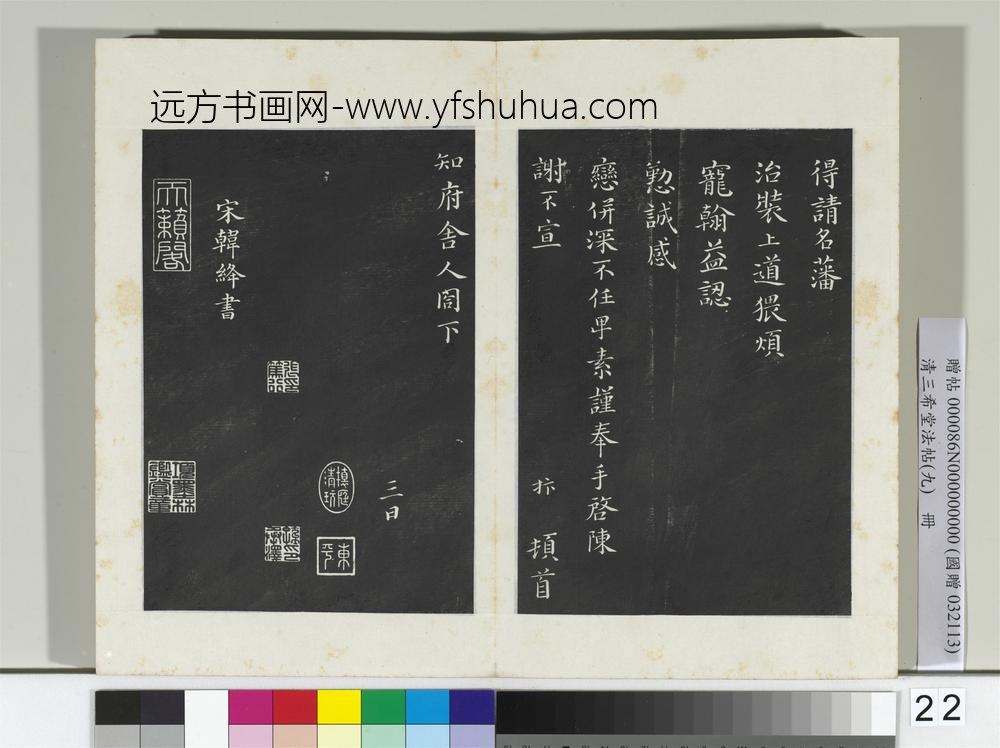 远方书画网-www.yfshuhua.com
得請名藩
治裝上道猥煩
寵翰益認
懃誠感
戀併深不任早素謹奉手啓陳
謝不宣 頓首
知府舍人閤下
三日
宋韓絳書
天籟閣
項墨林鑑賞章
清玩
東平
贈帖 000086N000000000 (國贈 032113)
清三希堂法帖(九) 冊
22